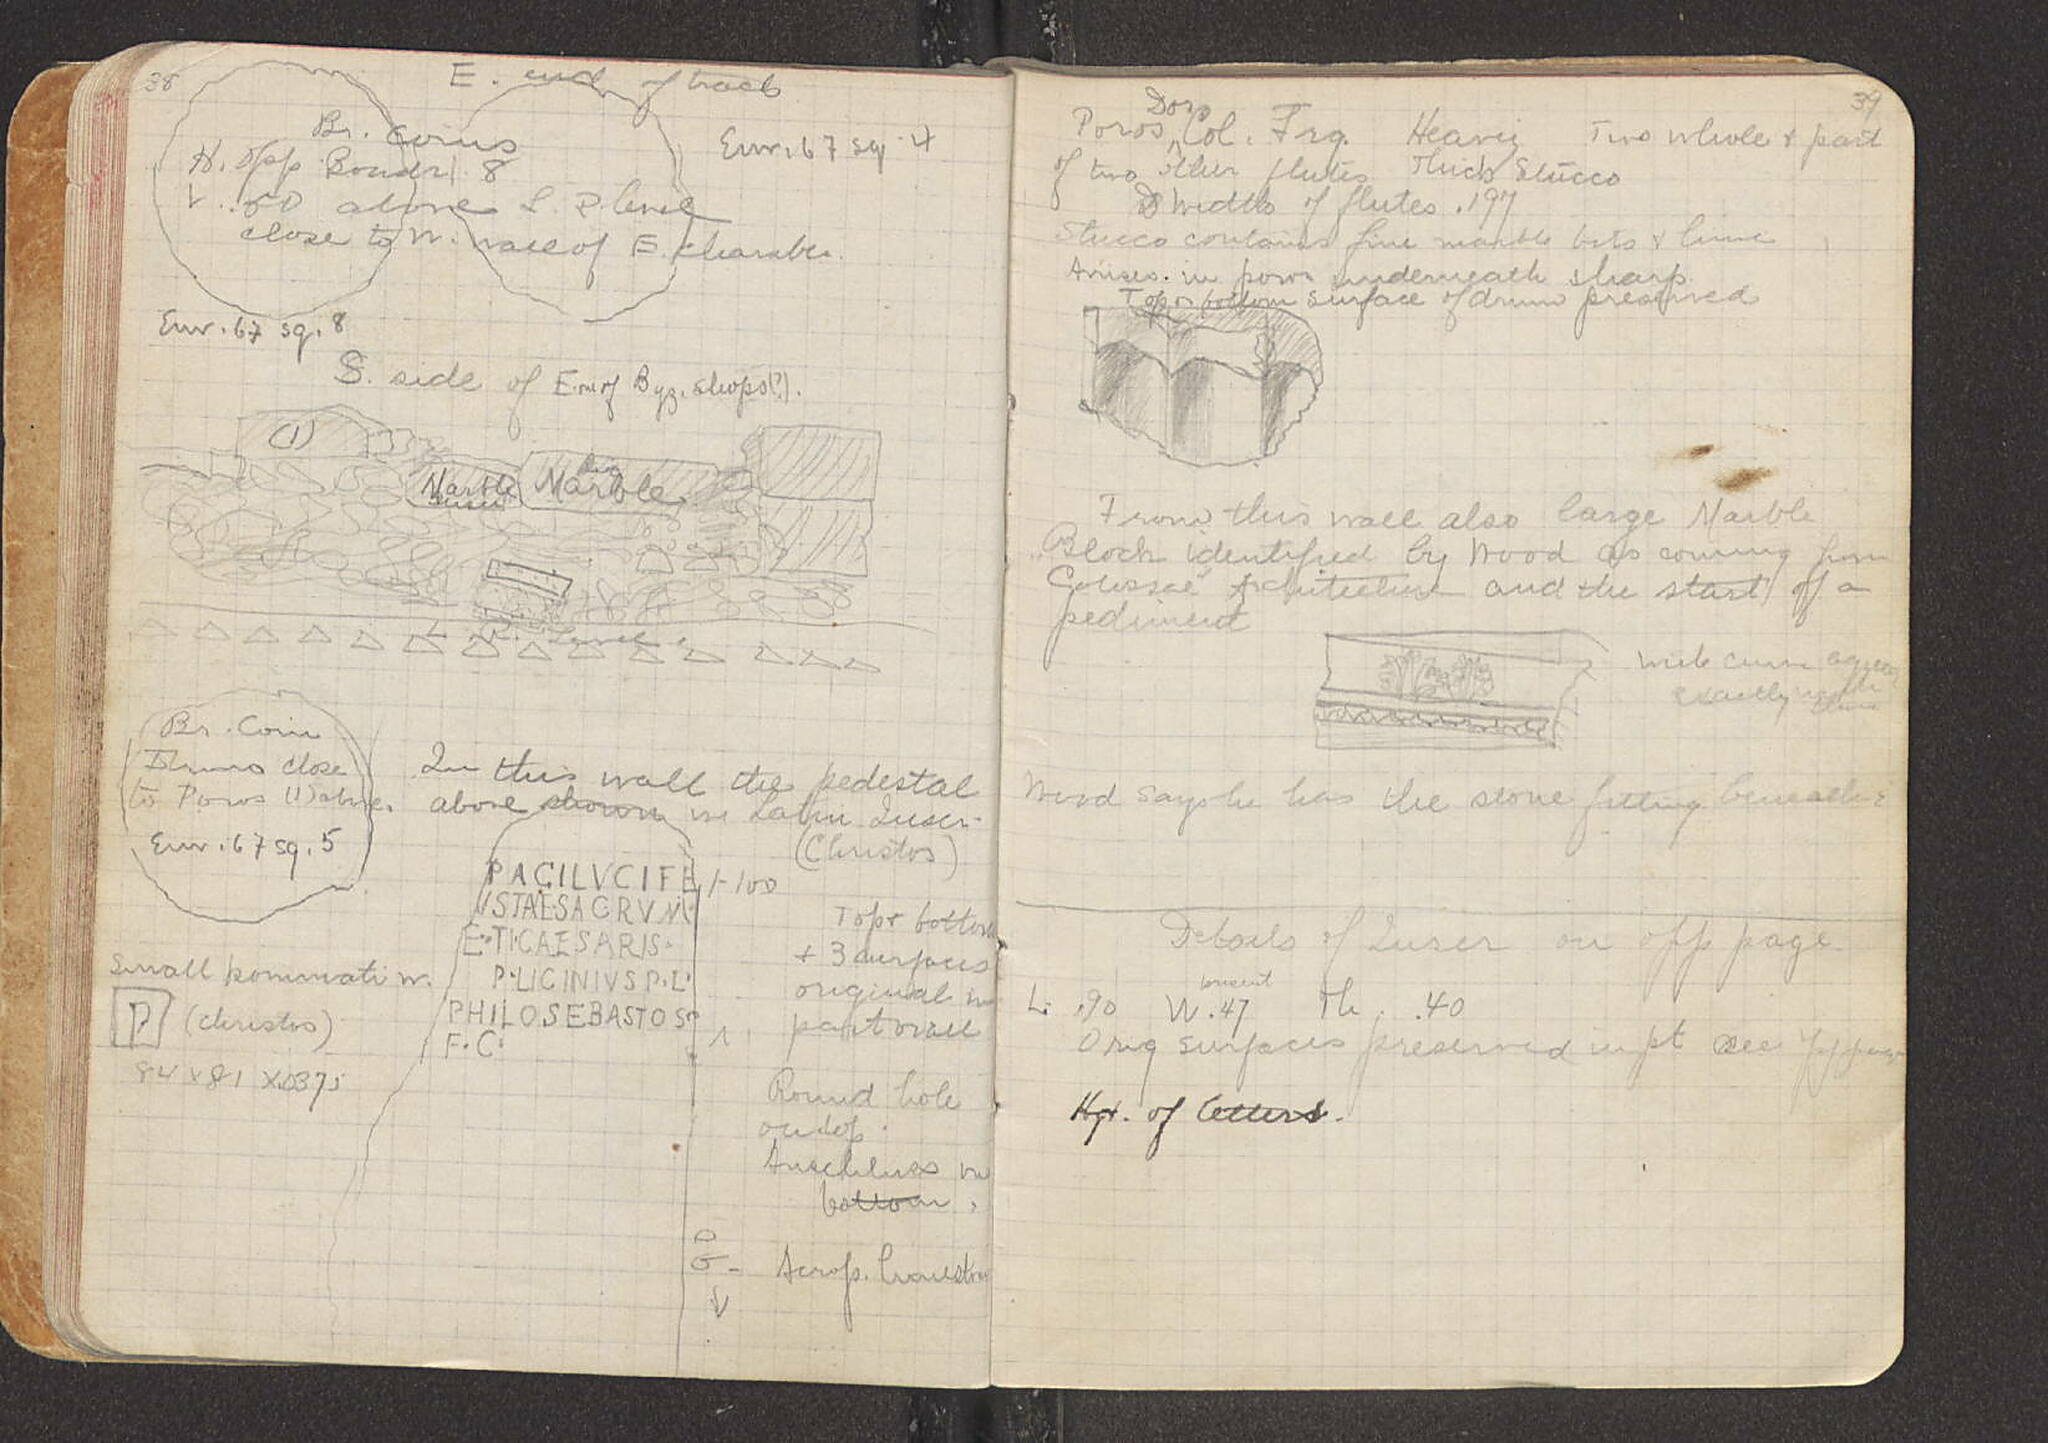 38
E. end of trach
Br. Coins
H. opp Boudr. 8
L. .50 above L. R. level
close to W. wall of E. chamber.
Env. 67 sq. 4
Env. 67 sq. 8
S. side of E. of Byz. shops(?).
(1)
Marble
Inscr
Marble
Level
Br. Coin
close
to Poros (1) above.
Env. 67 sq. 5
In this wall the pedestal
above shown in Latin Inscr.
(Christos)
PACILVCIFE
ISTAESACRVM
E·TI·CAESARIS·
P·LICINIVS P·L·
PHILOSEBASTOS
F·C·
1-100
Top + bottom
+ 3 surfaces
original in
part
Round hole
on top.
Anschluss on
bottom.
Acrop. limestone
Small kommati w.
P
(Christos)
84 x 81 x .0375
39
Poros Dor. Col. Frg. Heavy Two whole + part
of two other flutes Thick Stucco
Width of flutes .197
Stucco contains fine marble bits & lime
Arrises in poros underneath sharp.
Top + bottom surface of drum preserved
From this wall also large Marble
Block identified by Wood as coming from
"Colossae" Architecture and the start of a
pediment
with curve agrees
exactly with
Wood says he has the stone fitting beneath it
Details of Inscr on opp page
L. .90 W. present .47 Th. .40
Orig surfaces preserved in pt see opp page
Hgt. of letters.